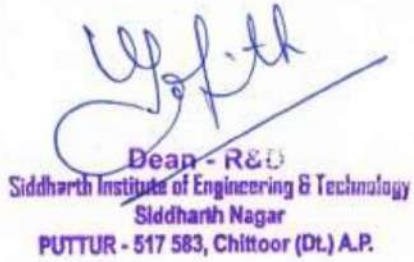 Dean - R&D
Siddharth Institute of Engineering & Technology
Siddharth Nagar
PUTTUR - 517 583, Chittoor (Dt.) A.P.